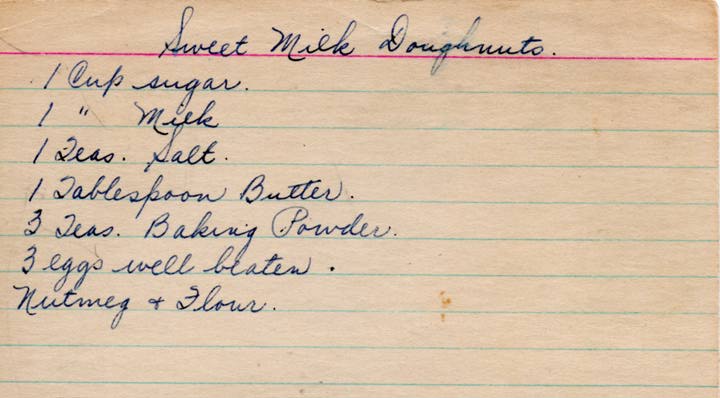 Sweet Milk Doughnuts.
1 Cup sugar.
1 " Milk
1 Teas. Salt.
1 Tablespoon Butter.
3 Teas. Baking Powder.
3 eggs well beaten.
Nutmeg + Flour.